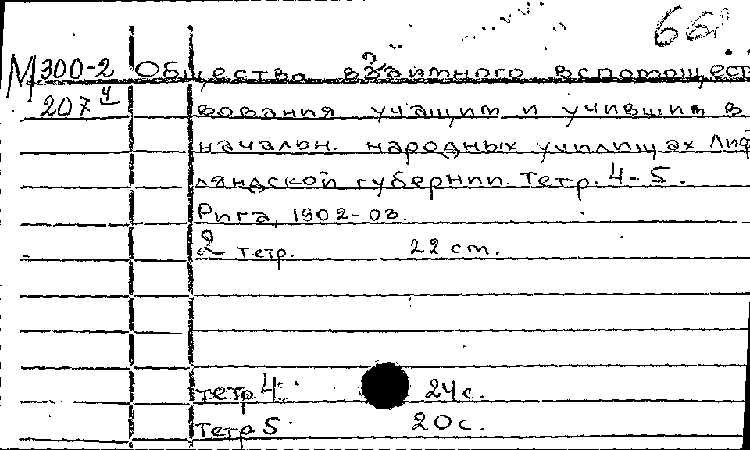 66
М 300-2 Общество взаимного вспомощест
207 4 вования учащим и учившим в
начальн. народных училищах Лиф
ляндской губернии. Тетр. 4-5.
Рига, 1902-03
2 тетр. 22 cm.
тетр 4. 24 с.
тетр 5 20 с.